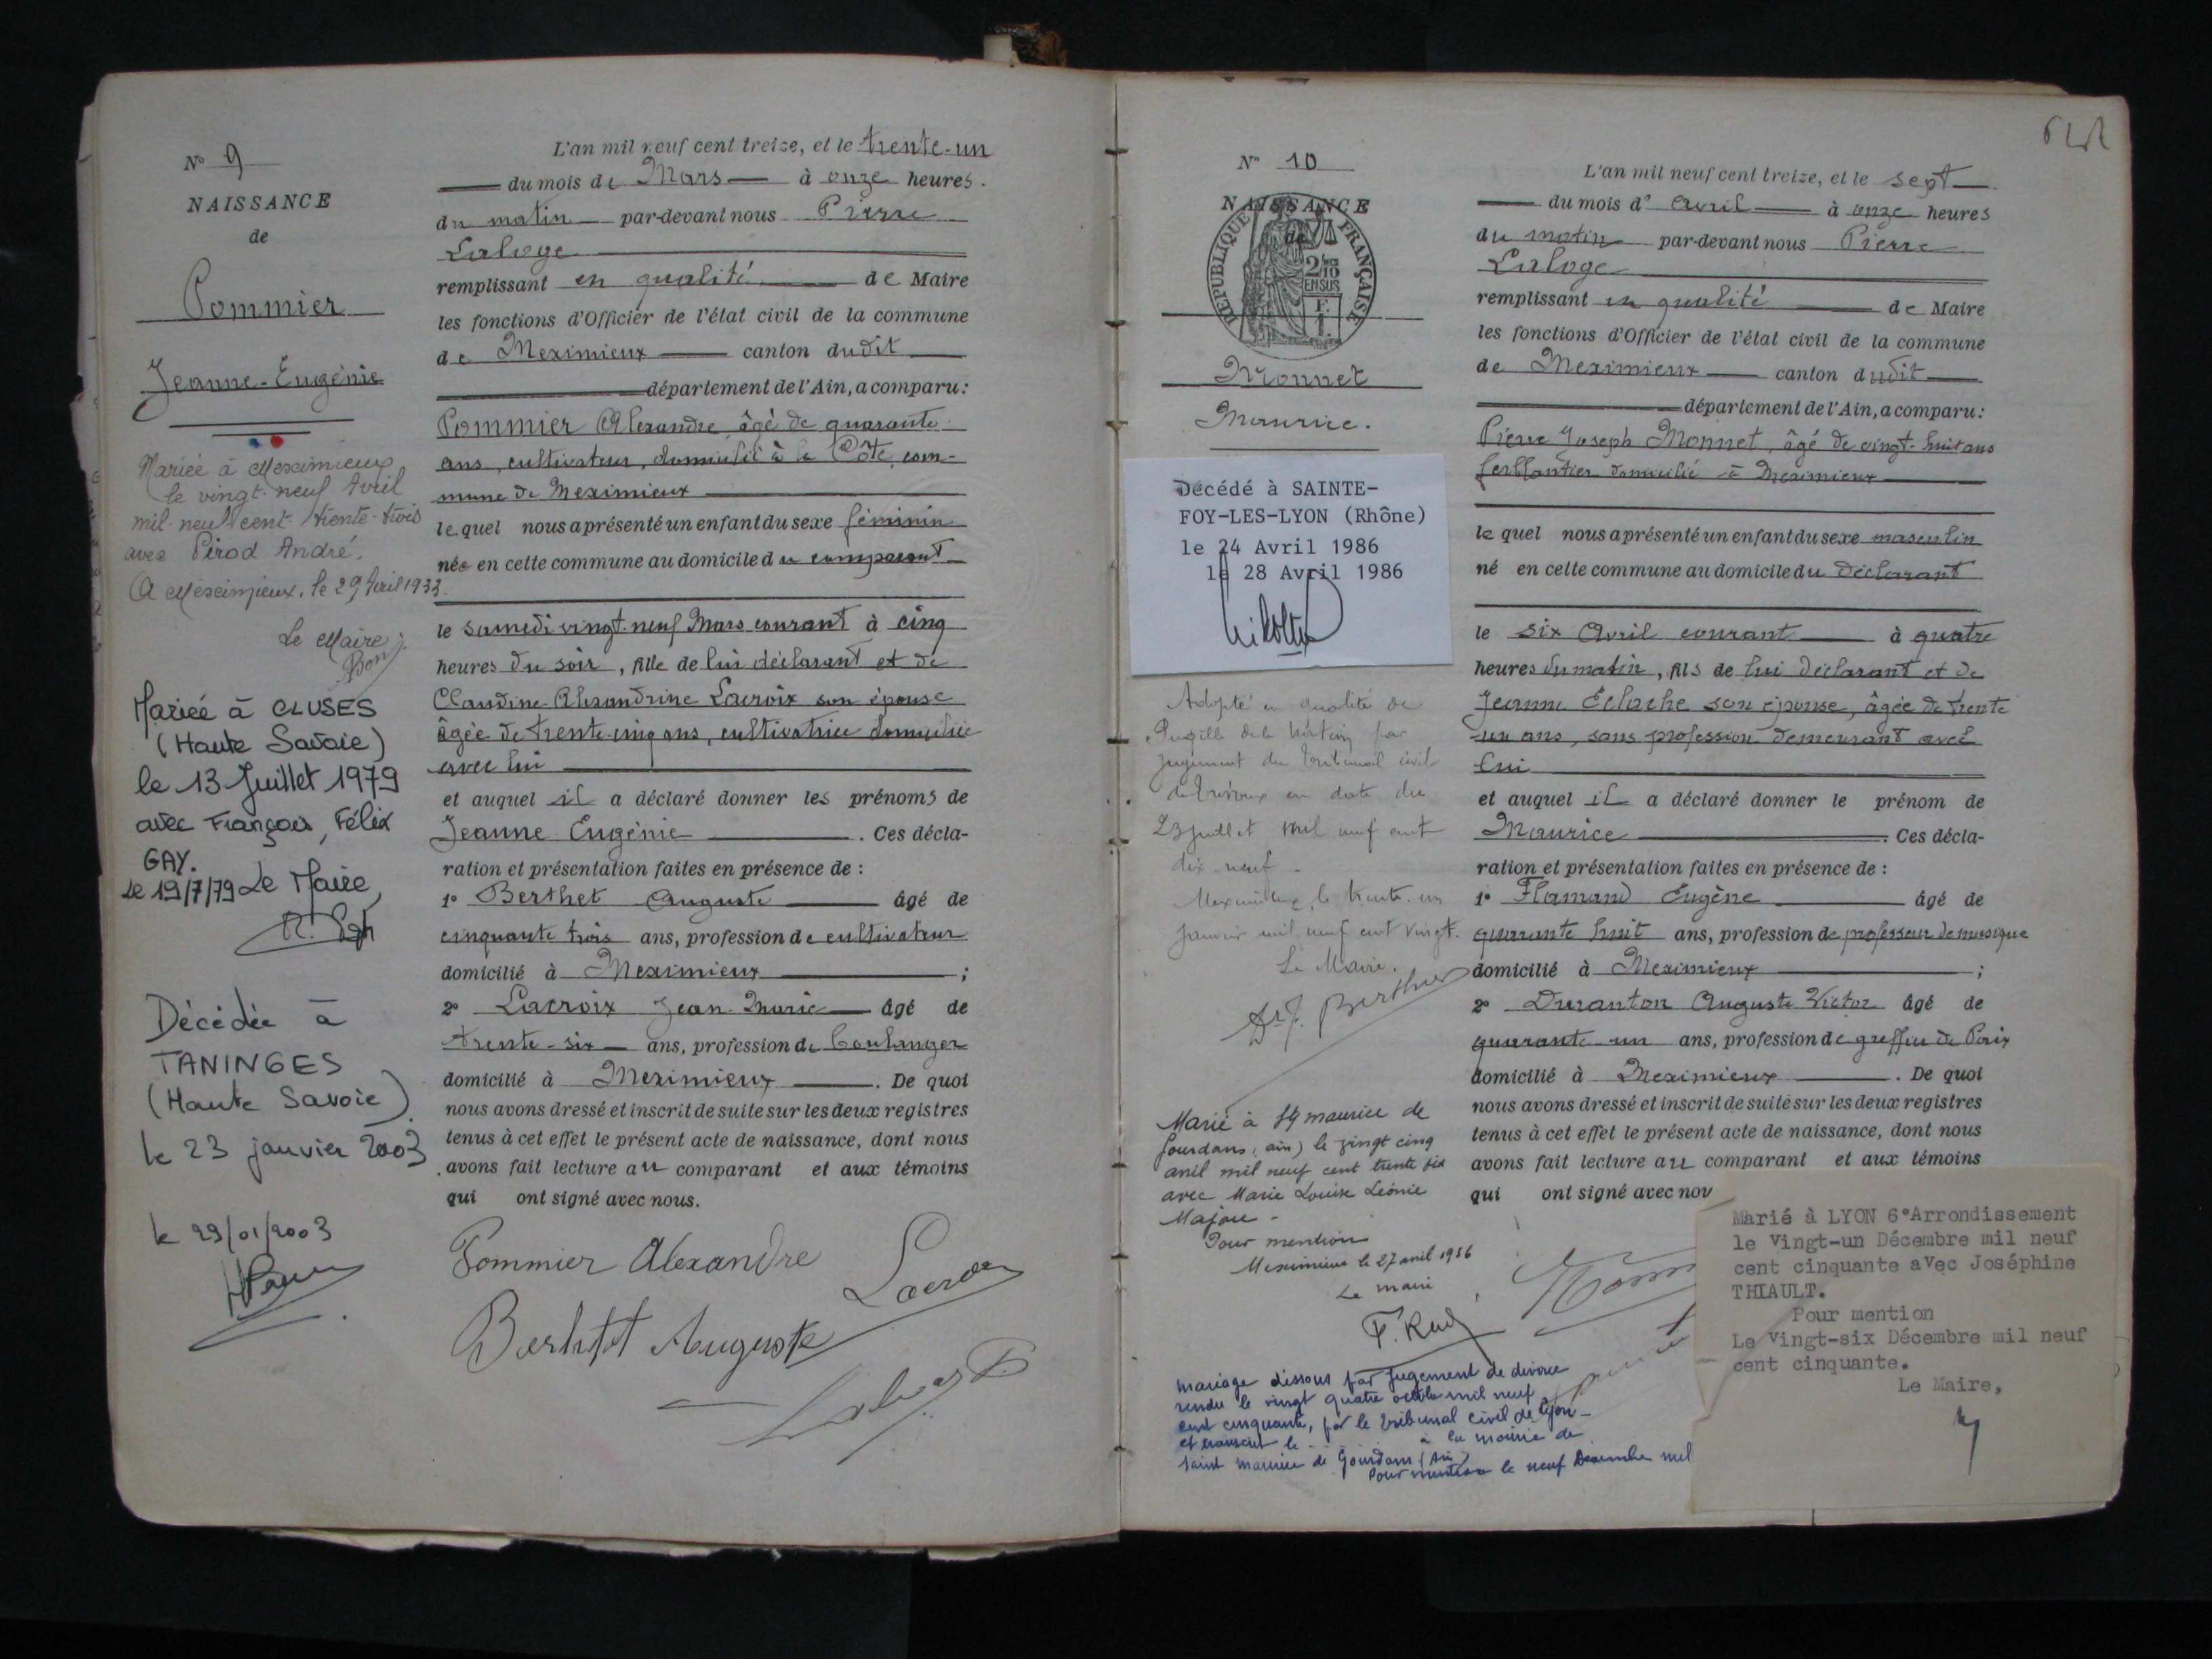 N° 9
NAISSANCE
de
Pommier
Jeanne-Eugénie
Mariée à Meximieux
le vingt-neuf Avril
mil-neuf cent trente-trois
avec Pérod André.
A Meximieux, le 29 Avril 1933.
Le Maire:
Mariée à CLUSES
(Haute Savoie)
le 13 Juillet 1979
avec François, Félix
GAY.
Le 19/7/79 Le Maire,
Décédée à
TANINGES
(Haute Savoie).
le 23 janvier 2003
le 29/01/2003
L'an mil neuf cent treize, et le trente-un
du mois de Mars à onze heures.
du matin par-devant nous Pierre
Laloge
remplissant en qualité de Maire
les fonctions d'Officier de l'état civil de la commune
de Meximieux canton dudit
département de l'Ain, a comparu:
Pommier Alexandre âgé de quarante
ans, cultivateur, domicilié à la Côte, com-
mune de Meximieux
lequel nous a présenté un enfant du sexe féminin
née en cette commune au domicile du comparant
le samedi vingt-neuf Mars courant à cinq
heures du soir, fille de lui déclarant et de
Claudine Alexandrine Lacroix son épouse
âgée de trente-cinq ans, cultivatrice domiciliée
avec lui
et auquel il a déclaré donner les prénoms de
Jeanne Eugénie . Ces décla-
ration et présentation faites en présence de :
1° Berthet Auguste âgé de
cinquante trois ans, profession de cultivateur
domicilié à Meximieux ;
2° Lacroix Jean-Marie âgé de
trente-six ans, profession de boulanger
domicilié à Meximieux . De quoi
nous avons dressé et inscrit de suite sur les deux registres
tenus à cet effet le présent acte de naissance, dont nous
avons fait lecture au comparant et aux témoins
qui ont signé avec nous.
Pommier Alexandre
Lacroix
Berthet Auguste
N° 10
NAISSANCE
de
REPUBLIQUE FRANÇAISE
2/10
EN SUS
Monnet
Maurice.
Décédé à SAINTE-
FOY-LES-LYON (Rhône)
le 24 Avril 1986
le 28 Avril 1986
Adopté en qualité de
Pupille de la Nation par
jugement du tribunal civil
de Trévoux en date du
23 juillet mil neuf cent
dix-neuf.
Meximieux, le trente-un
janvier mil neuf cent vingt.
Le Maire.
Berthet
Marié à St maurice de
Gourdans (ain) le vingt cinq
avril mil neuf cent trente six
avec Marie Louise Léonie
Pour mention
Meximieux le 27 avril 1936
Le maire
mariage dissous par jugement de divorce
rendu le vingt quatre octobre mil neuf
cent cinquante, par le tribunal civil de Lyon
et transcrit le à la mairie de
Saint Maurice de Gourdans (Ain)
Pour mention le neuf Décembre mil
L'an mil neuf cent treize, et le sept
du mois d'avril à onze heures
du matin par-devant nous Pierre
Laloge
remplissant en qualité de Maire
les fonctions d'Officier de l'état civil de la commune
de Meximieux canton dudit
département de l'Ain, a comparu:
Pierre Joseph Monnet, âgé de vingt-huit ans
ferblantier domicilié à Meximieux
lequel nous a présenté un enfant du sexe masculin
né en cette commune au domicile du déclarant
le six Avril courant à quatre
heures du matin, fils de lui déclarant et de
Jeanne Eclache son épouse, âgée de trente
un ans, sans profession demeurant avec
lui
et auquel il a déclaré donner le prénom de
Maurice . Ces décla-
ration et présentation faites en présence de :
1° Flamand Eugène âgé de
quarante huit ans, profession de professeur de musique
domicilié à Meximieux ;
2° Duranton Auguste Victor âgé de
quarante-un ans, profession de greffier de Paix
domicilié à Meximieux . De quoi
nous avons dressé et inscrit de suite sur les deux registres
tenus à cet effet le présent acte de naissance, dont nous
avons fait lecture au comparant et aux témoins
qui ont signé avec nou
Marié à LYON 6°Arrondissement
le Vingt-un Décembre mil neuf
cent cinquante avec Joséphine
THIAULT.
Pour mention
Le Vingt-six Décembre mil neuf
cent cinquante.
Le Maire,